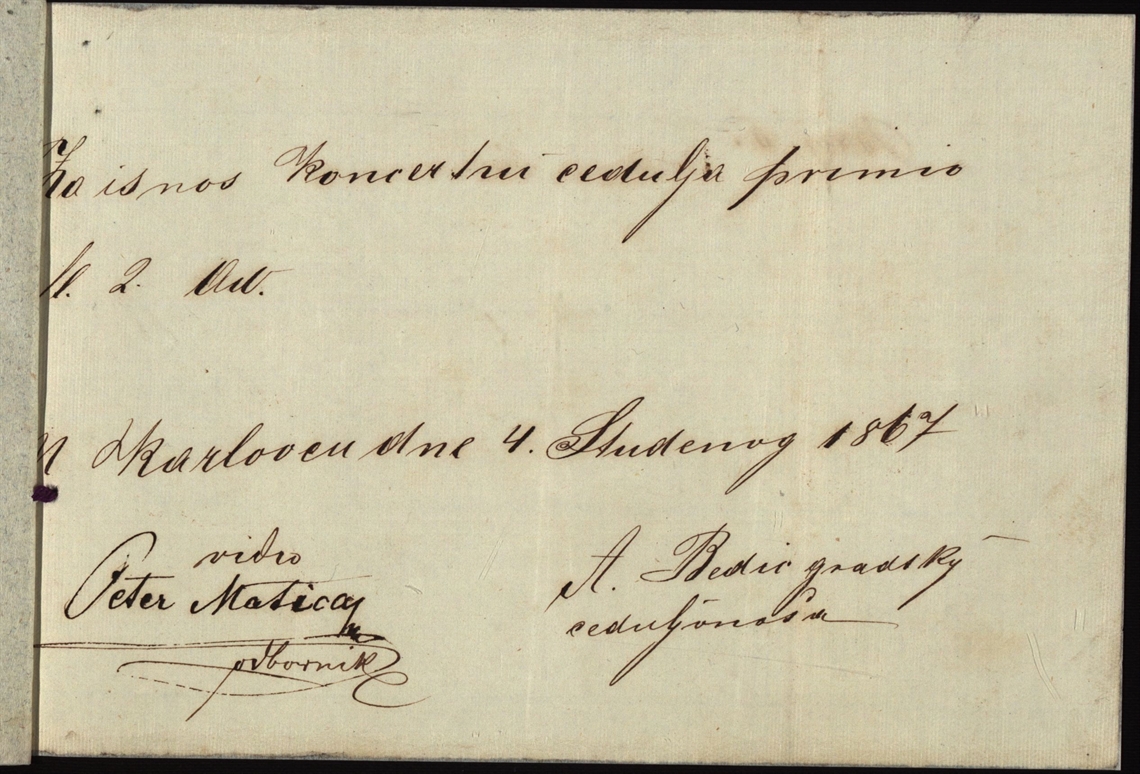 Za isnos koncertni cedulja primio
fl. 2. Av.
U Karlovcu dne 4. Studenog 1867
vidio
Peter Matica
odbornik
A. Bedic gradsky
ceduljonoša